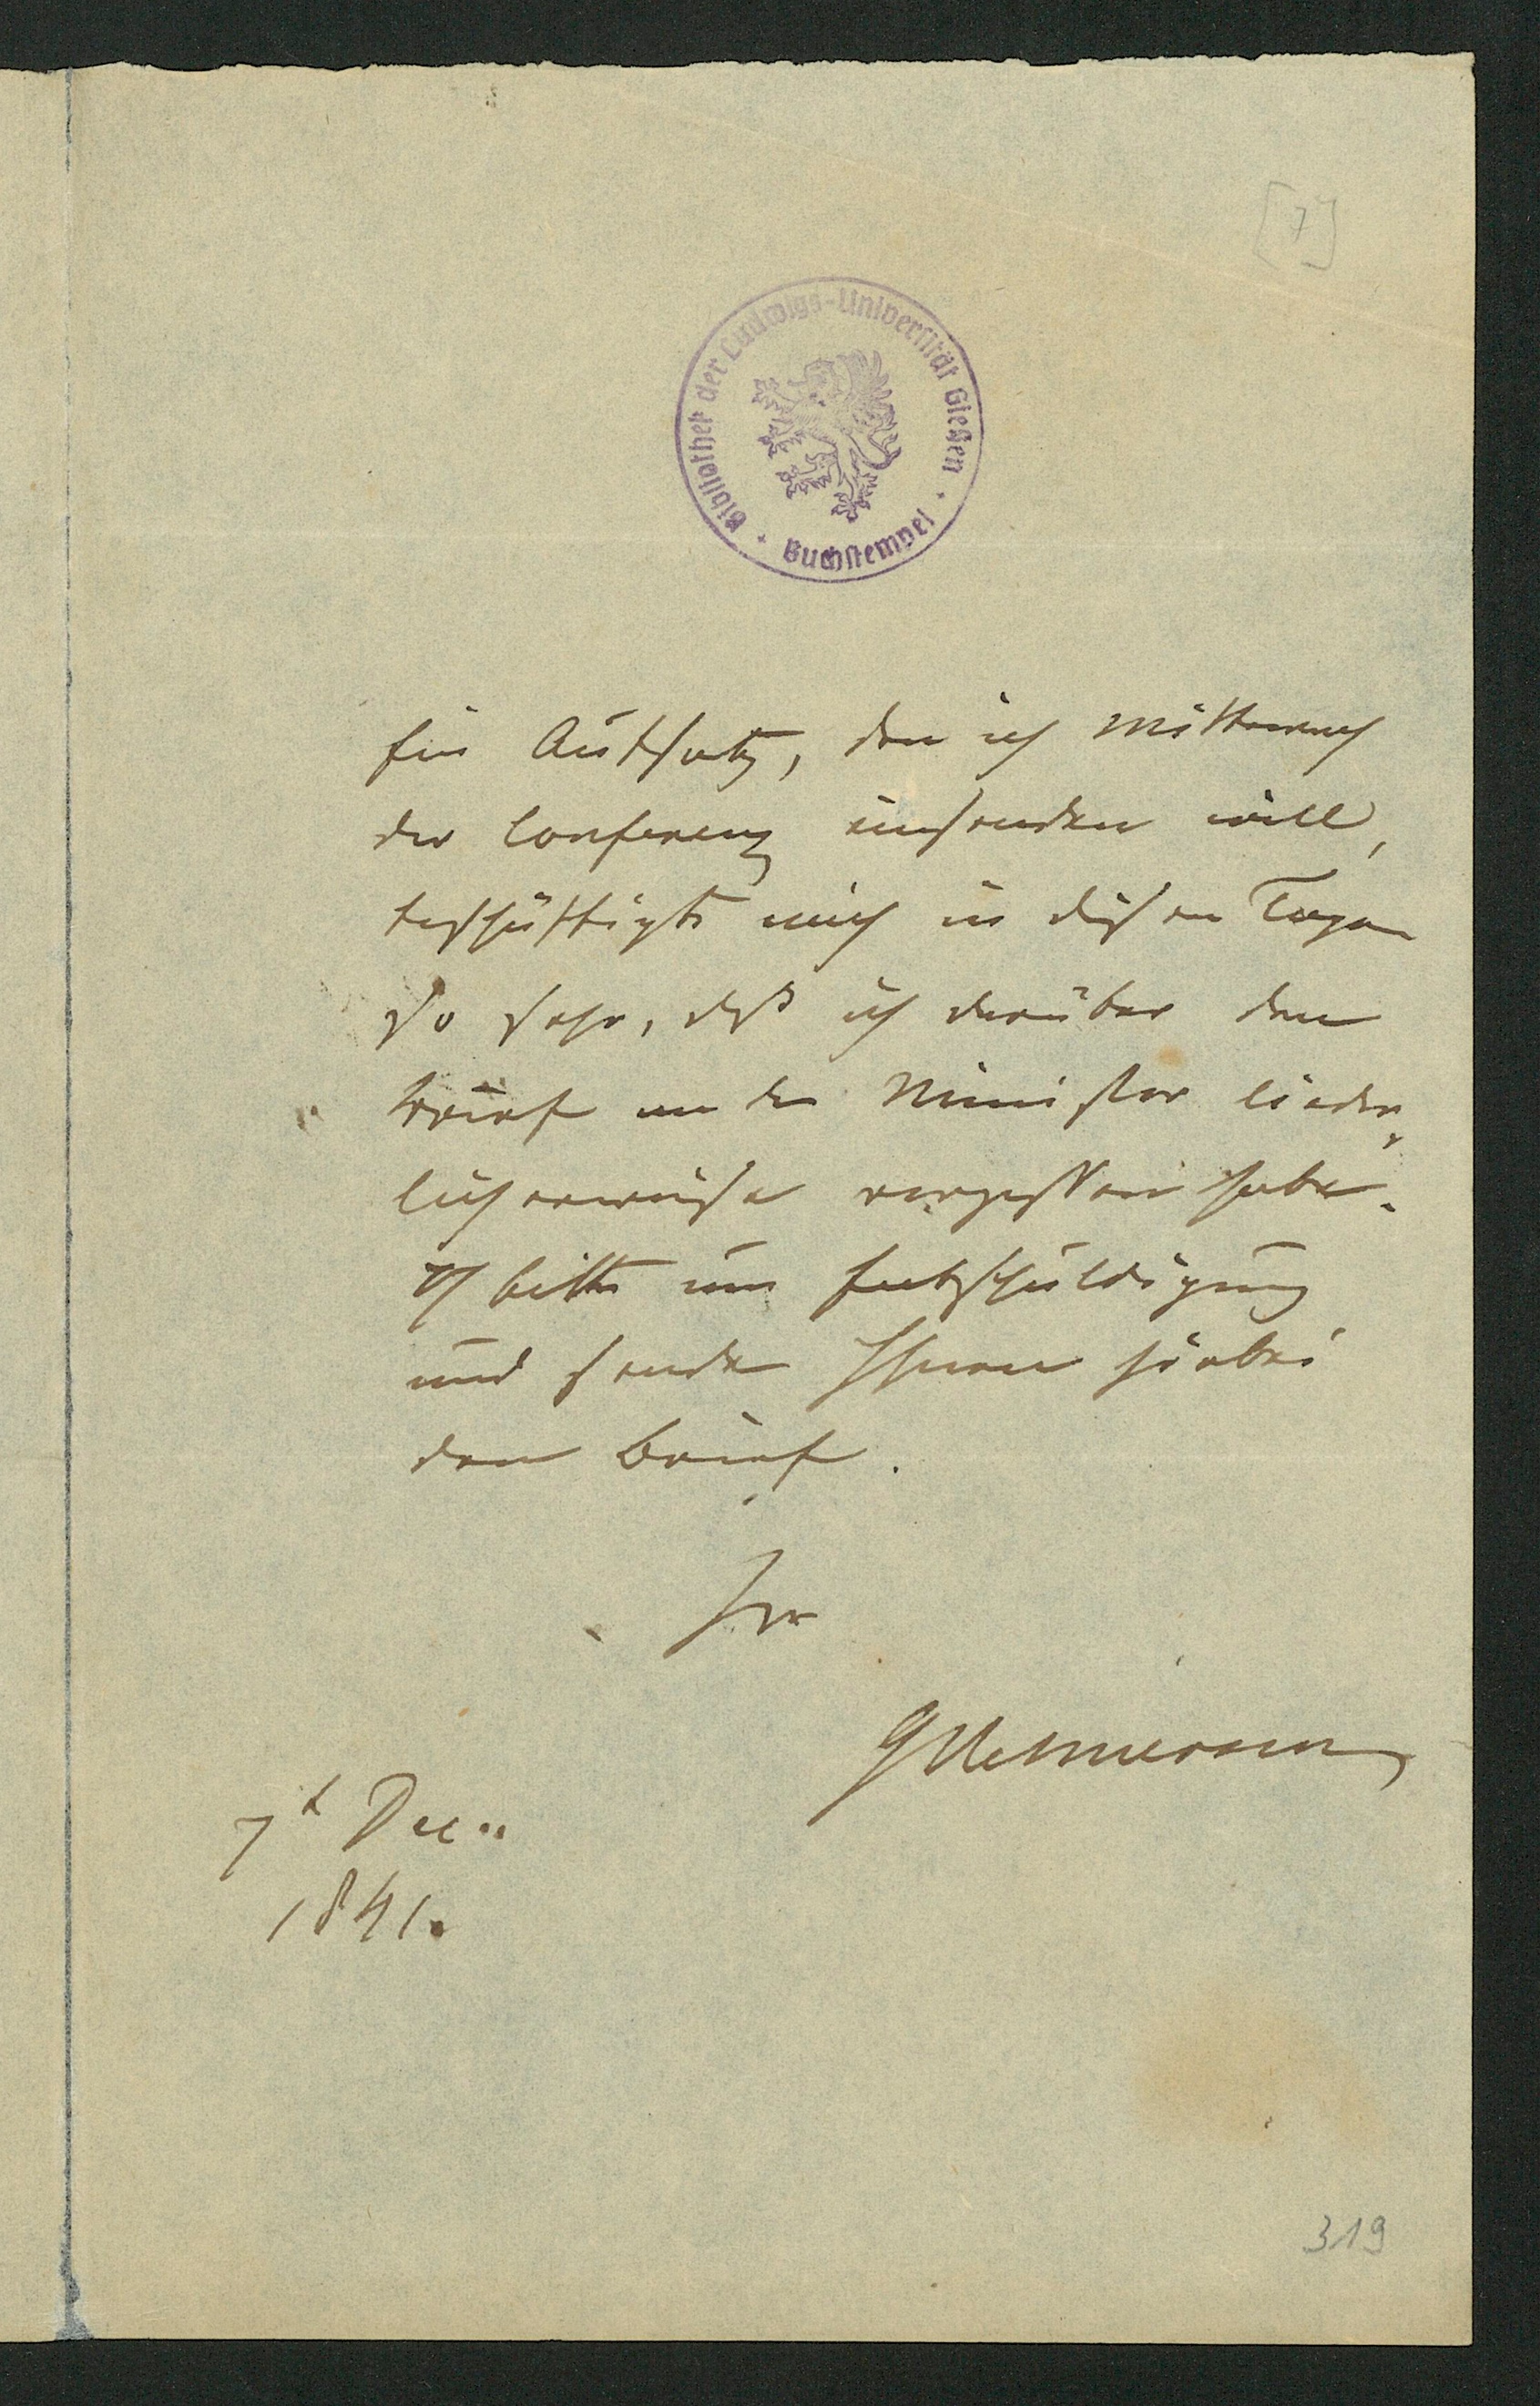 [7]
Bibliothek der Ludwigs-Universität Gießen
Buchstempel
Ein Aufsatz, den ich Mittwoch
der Conferenz einsenden will,
beschäftigte mich in diesen Tagen
so sehr, daß ich darüber den
Brief an den Minister lieder-
licherweise vergessen habe.
Ich bitte um Entschuldigung
und sende Ihnen hierbei
den Brief.
Ihr
7t Dec.
1841.
319